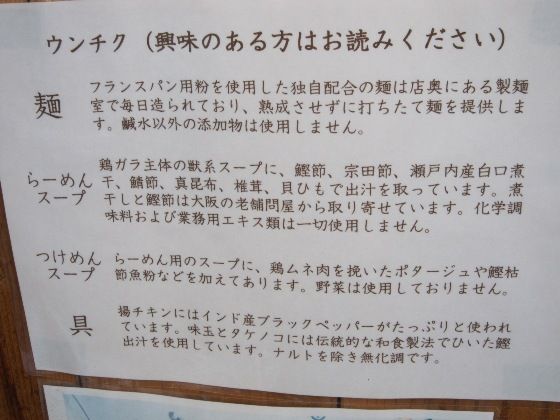 ウンチク（興味のある方はお読みください）
麺
フランスパン用粉を使用した独自配合の麺は店奥にある製麺
室で毎日造られており、熟成させずに打ちたて麺を提供しま
す。鹹水以外の添加物は使用しません。
らーめん
スープ
鶏ガラ主体の獣系スープに、鰹節、宗田節、瀬戸内産白口煮
干、鯖節、真昆布、椎茸、貝ひもで出汁を取っています。煮
干しと鰹節は大阪の老舗問屋から取り寄せています。化学調
味料および業務用エキス類は一切使用しません。
つけめん
スープ
らーめん用のスープに、鶏ムネ肉を挽いたポタージュや鰹枯
節魚粉などを加えてあります。野菜は使用しておりません。
具
揚チキンにはインド産ブラックペッパーがたっぷりと使われ
ています。味玉とタケノコには伝統的な和食製法でひいた鰹
出汁を使用しています。ナルトを除き無化調です。